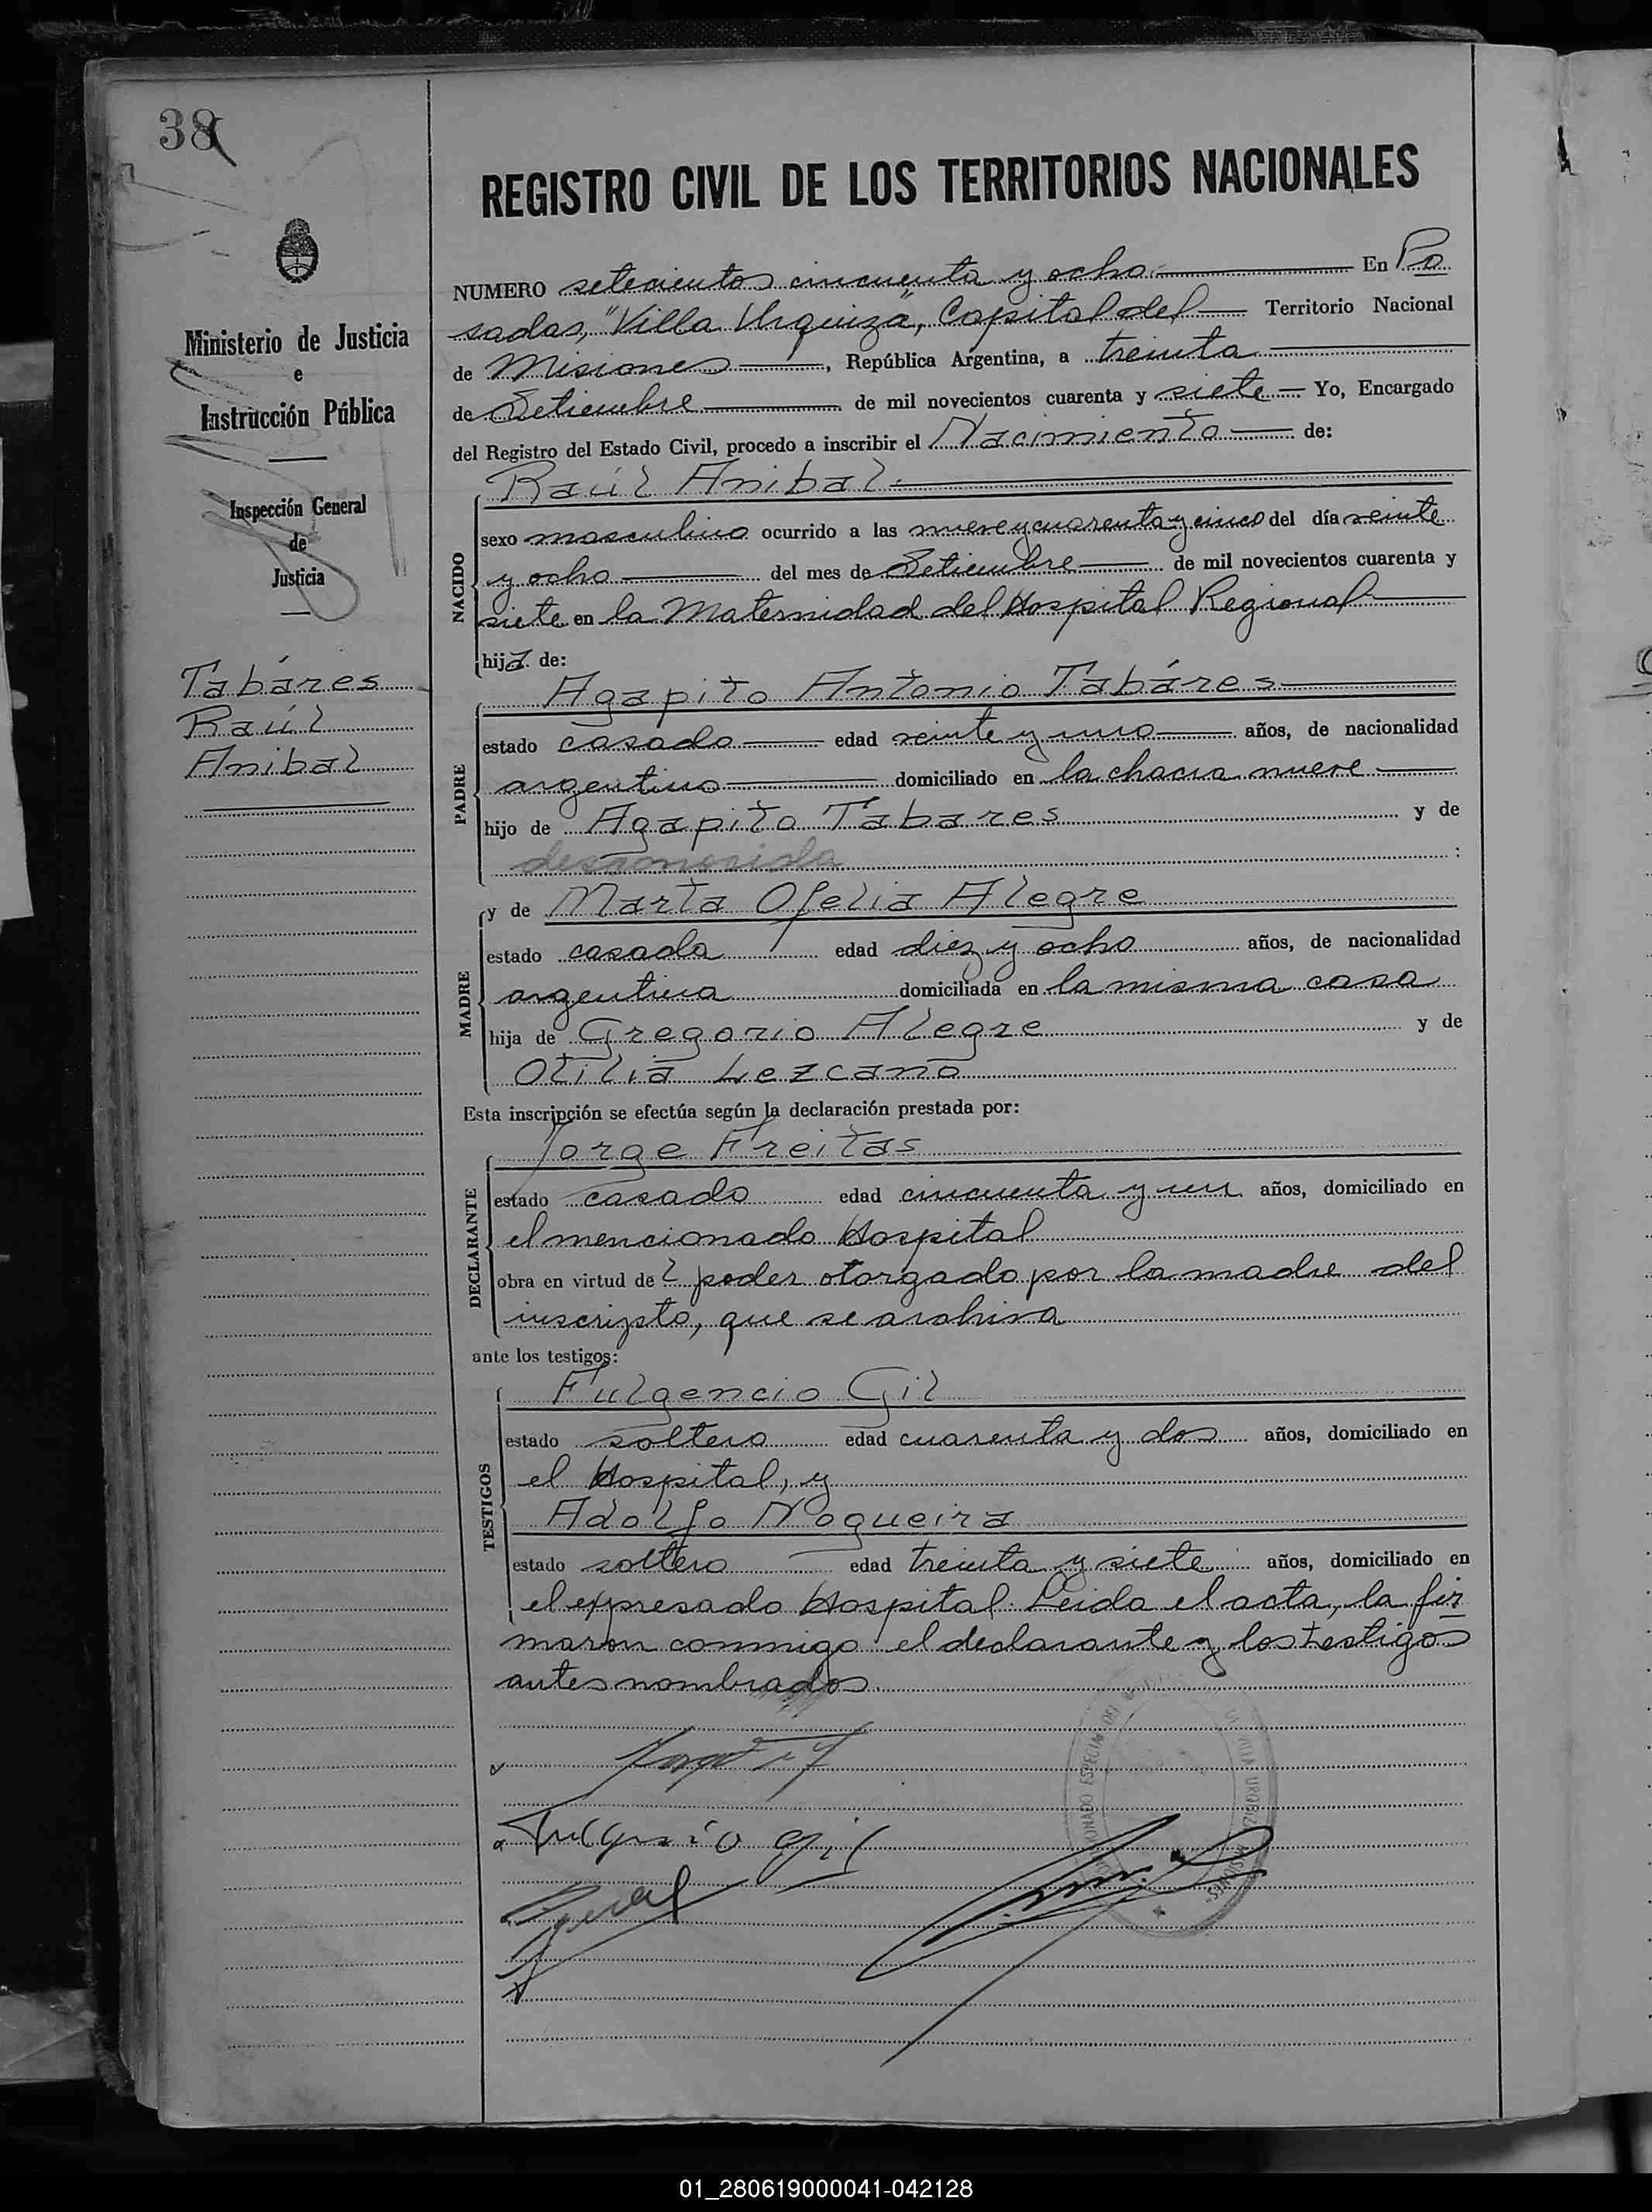 38
REGISTRO CIVIL DE LOS TERRITORIOS NACIONALES
Ministerio de Justicia
e
Instrucción Pública
Inspección General
de
Justicia
Tabáres
Raúl
Anibal
NUMERO setecientos cincuenta y ocho. En Po
sadas, "Villa Urquiza", Capital del Territorio Nacional
de Misiones, República Argentina, a treinta
de Setiembre de mil novecientos cuarenta y siete Yo, Encargado
del Registro del Estado Civil, procedo a inscribir el Nacimiento de:
Raúl Anibal.
NACIDO
sexo masculino ocurrido a las nueve y cuarenta y cinco del día veinte
y ocho del mes de Setiembre de mil novecientos cuarenta y
siete en la Maternidad del Hospital Regional
hijo de:
Agapito Antonio Tabáres
PADRE
estado casado edad veinte y uno años, de nacionalidad
argentino domiciliado en la chacra nueve
hijo de Agapito Tabares y de
desconocida :
y de Marta Ofelia Alegre
MADRE
estado casada edad diez y ocho años, de nacionalidad
argentina domiciliada en la misma casa
hija de Gregorio Alegre y de
Otilia Lezcano
Esta inscripción se efectúa según la declaración prestada por:
Jorge Freitas
DECLARANTE
estado casado edad cincuenta y un años, domiciliado en
el mencionado Hospital
obra en virtud de l poder otorgado por la madre del
inscripto, que se archiva
ante los testigos:
Fulgencio Gil
TESTIGOS
estado soltero edad cuarenta y dos años, domiciliado en
el Hospital, y
Adolfo Nogueira
estado soltero edad treinta y siete años, domiciliado en
el expresado Hospital. Leida el acta, la fir
maron conmigo el declarante y los testigos
antes nombrados.
Fulgencio Gil
01_280619000041-042128